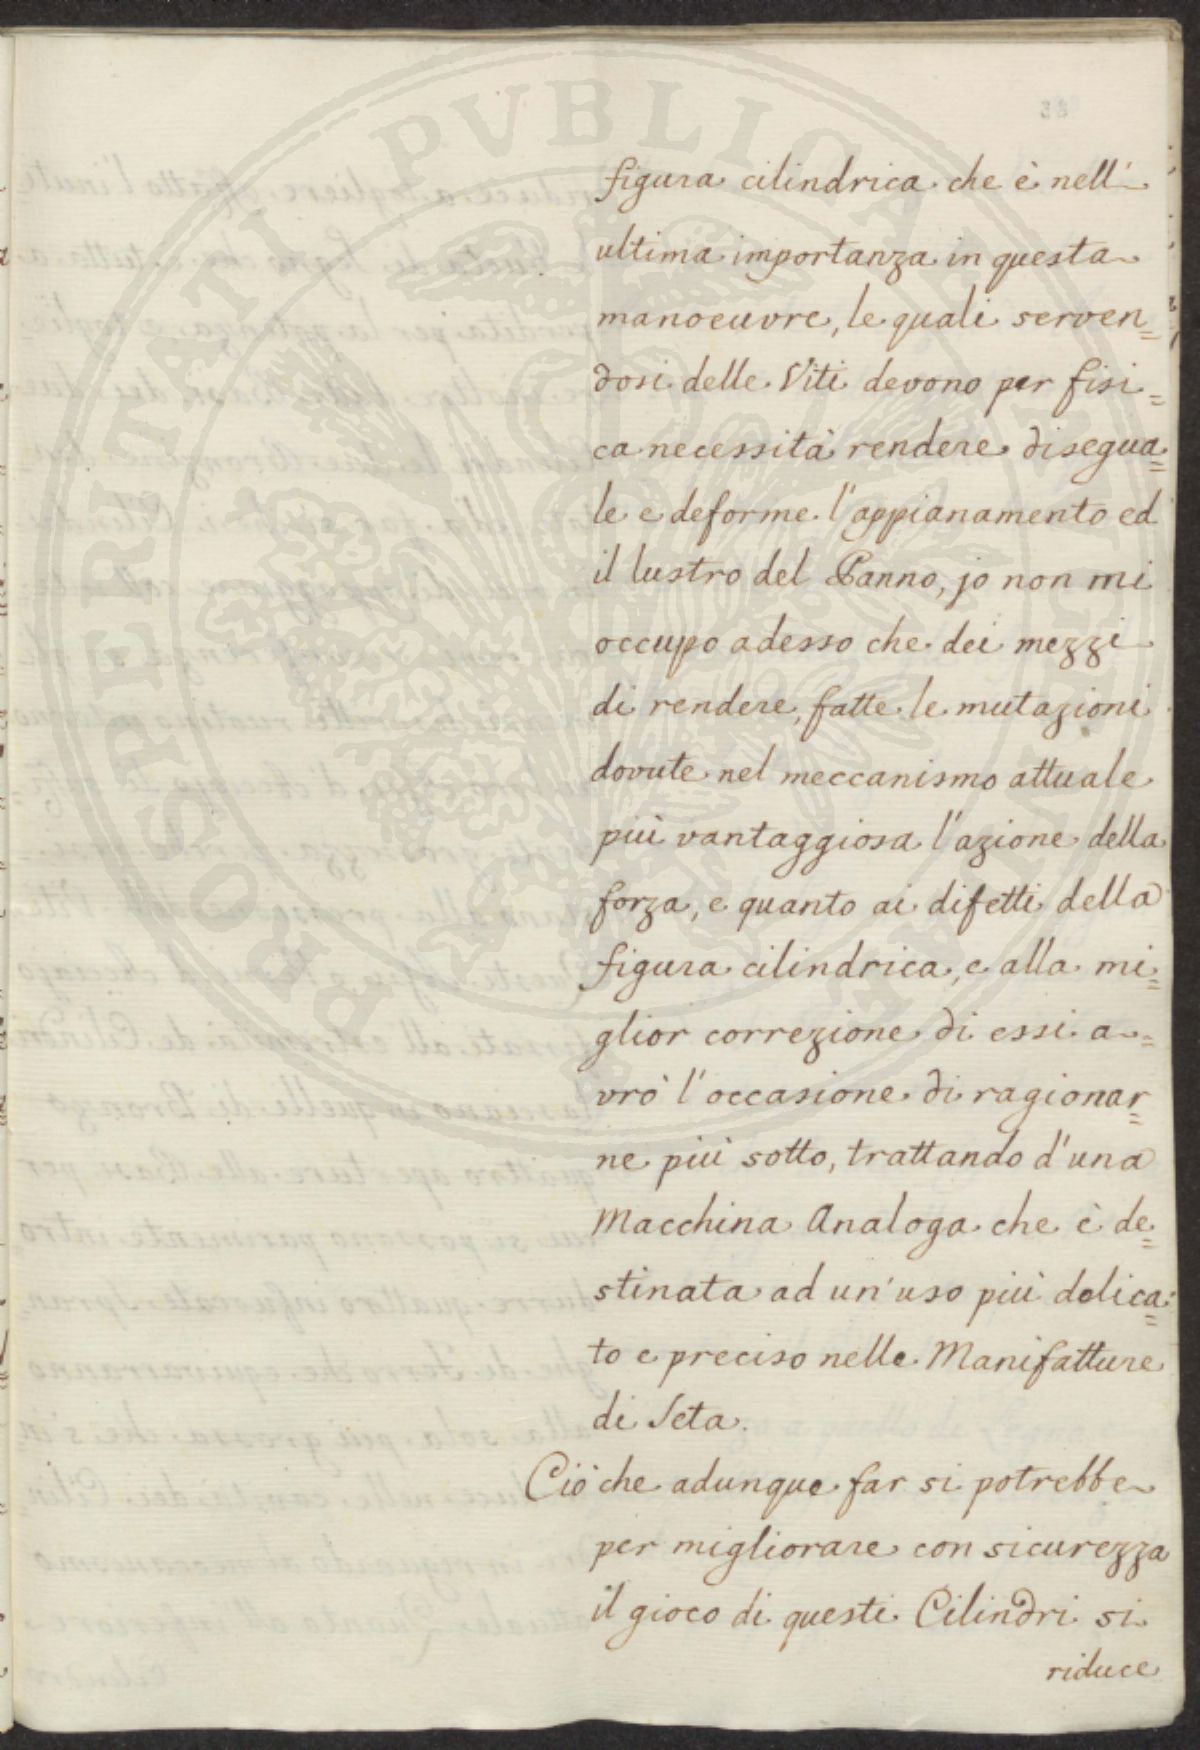 PROSPERITATI PUBLICAE AUGENDAE
figura cilindrica che è nell'
ultima importanza in questa
manoeuvre, le quali serven=
dosi delle Viti devono per fisi=
ca necessità rendere disegua=
le e deforme l'appianamento ed
il lustro del Panno, jo non mi
occupo adesso che dei mezzi
di rendere, fatte le mutazioni
dovute nel meccanismo attuale
più vantaggiosa l'azione della
forza, e quanto ai difetti della
figura cilindrica, e alla mi=
glior correzione di essi a=
vrò l'occasione di ragionar=
ne più sotto, trattando d'una
Macchina Analoga che è de=
stinata ad un'uso più delica=
to e preciso nelle Manifatture
di Seta.
Ciò che adunque far si potrebbe
per migliorare con sicurezza
il gioco di questi Cilindri si
riduce